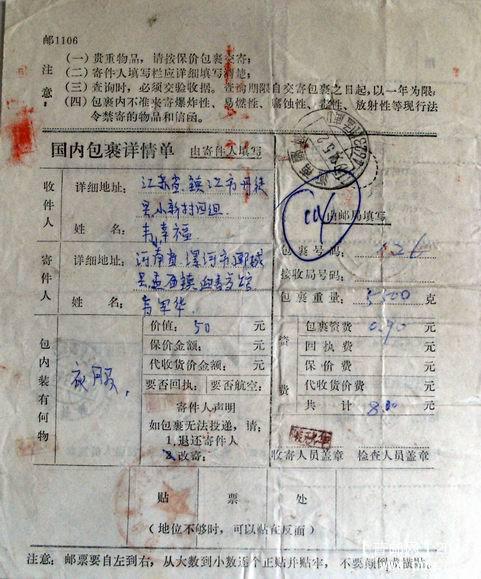 邮1106
注意：
(一) 贵重物品，请按保价包裹交寄；
(二) 寄件人填写栏应详细填写清楚；
(三) 查询时，必须交验收据。查询期限自交寄包裹之日起，以一年为限；
(四) 包裹内不准夹寄爆炸性、易燃性、腐蚀性、毒性、放射性等现行法
令禁寄的物品和信函。
国内包裹详情单 由寄件人填写
由邮局填写
收件人
详细地址： 江苏省镇江市丹徒
县小新村四组
姓名： 幸福
寄件人
详细地址： 河南省漯河市郾城
县孟西镇迎宾宾馆
姓名： 军华
包裹号码：
接收局号码：
包裹重量： 5500 克
包内装有何物
衣服，
价值： 50 元
保价金额： 元
代收货价金额： 元
要否回执： 要否航空：
寄件人声明
如包裹无法投递，请：
1.退还寄件人
2.改寄：
资费
包裹资费 元
回执费 元
保价费 元
代收货价费 元
共计 元
收寄人员盖章 检查人员盖章
贴票处
(地位不够时，可以贴在反面)
注意：邮票要自左到右，从大数到小数逐个正贴并贴牢，不要颠倒或横贴。